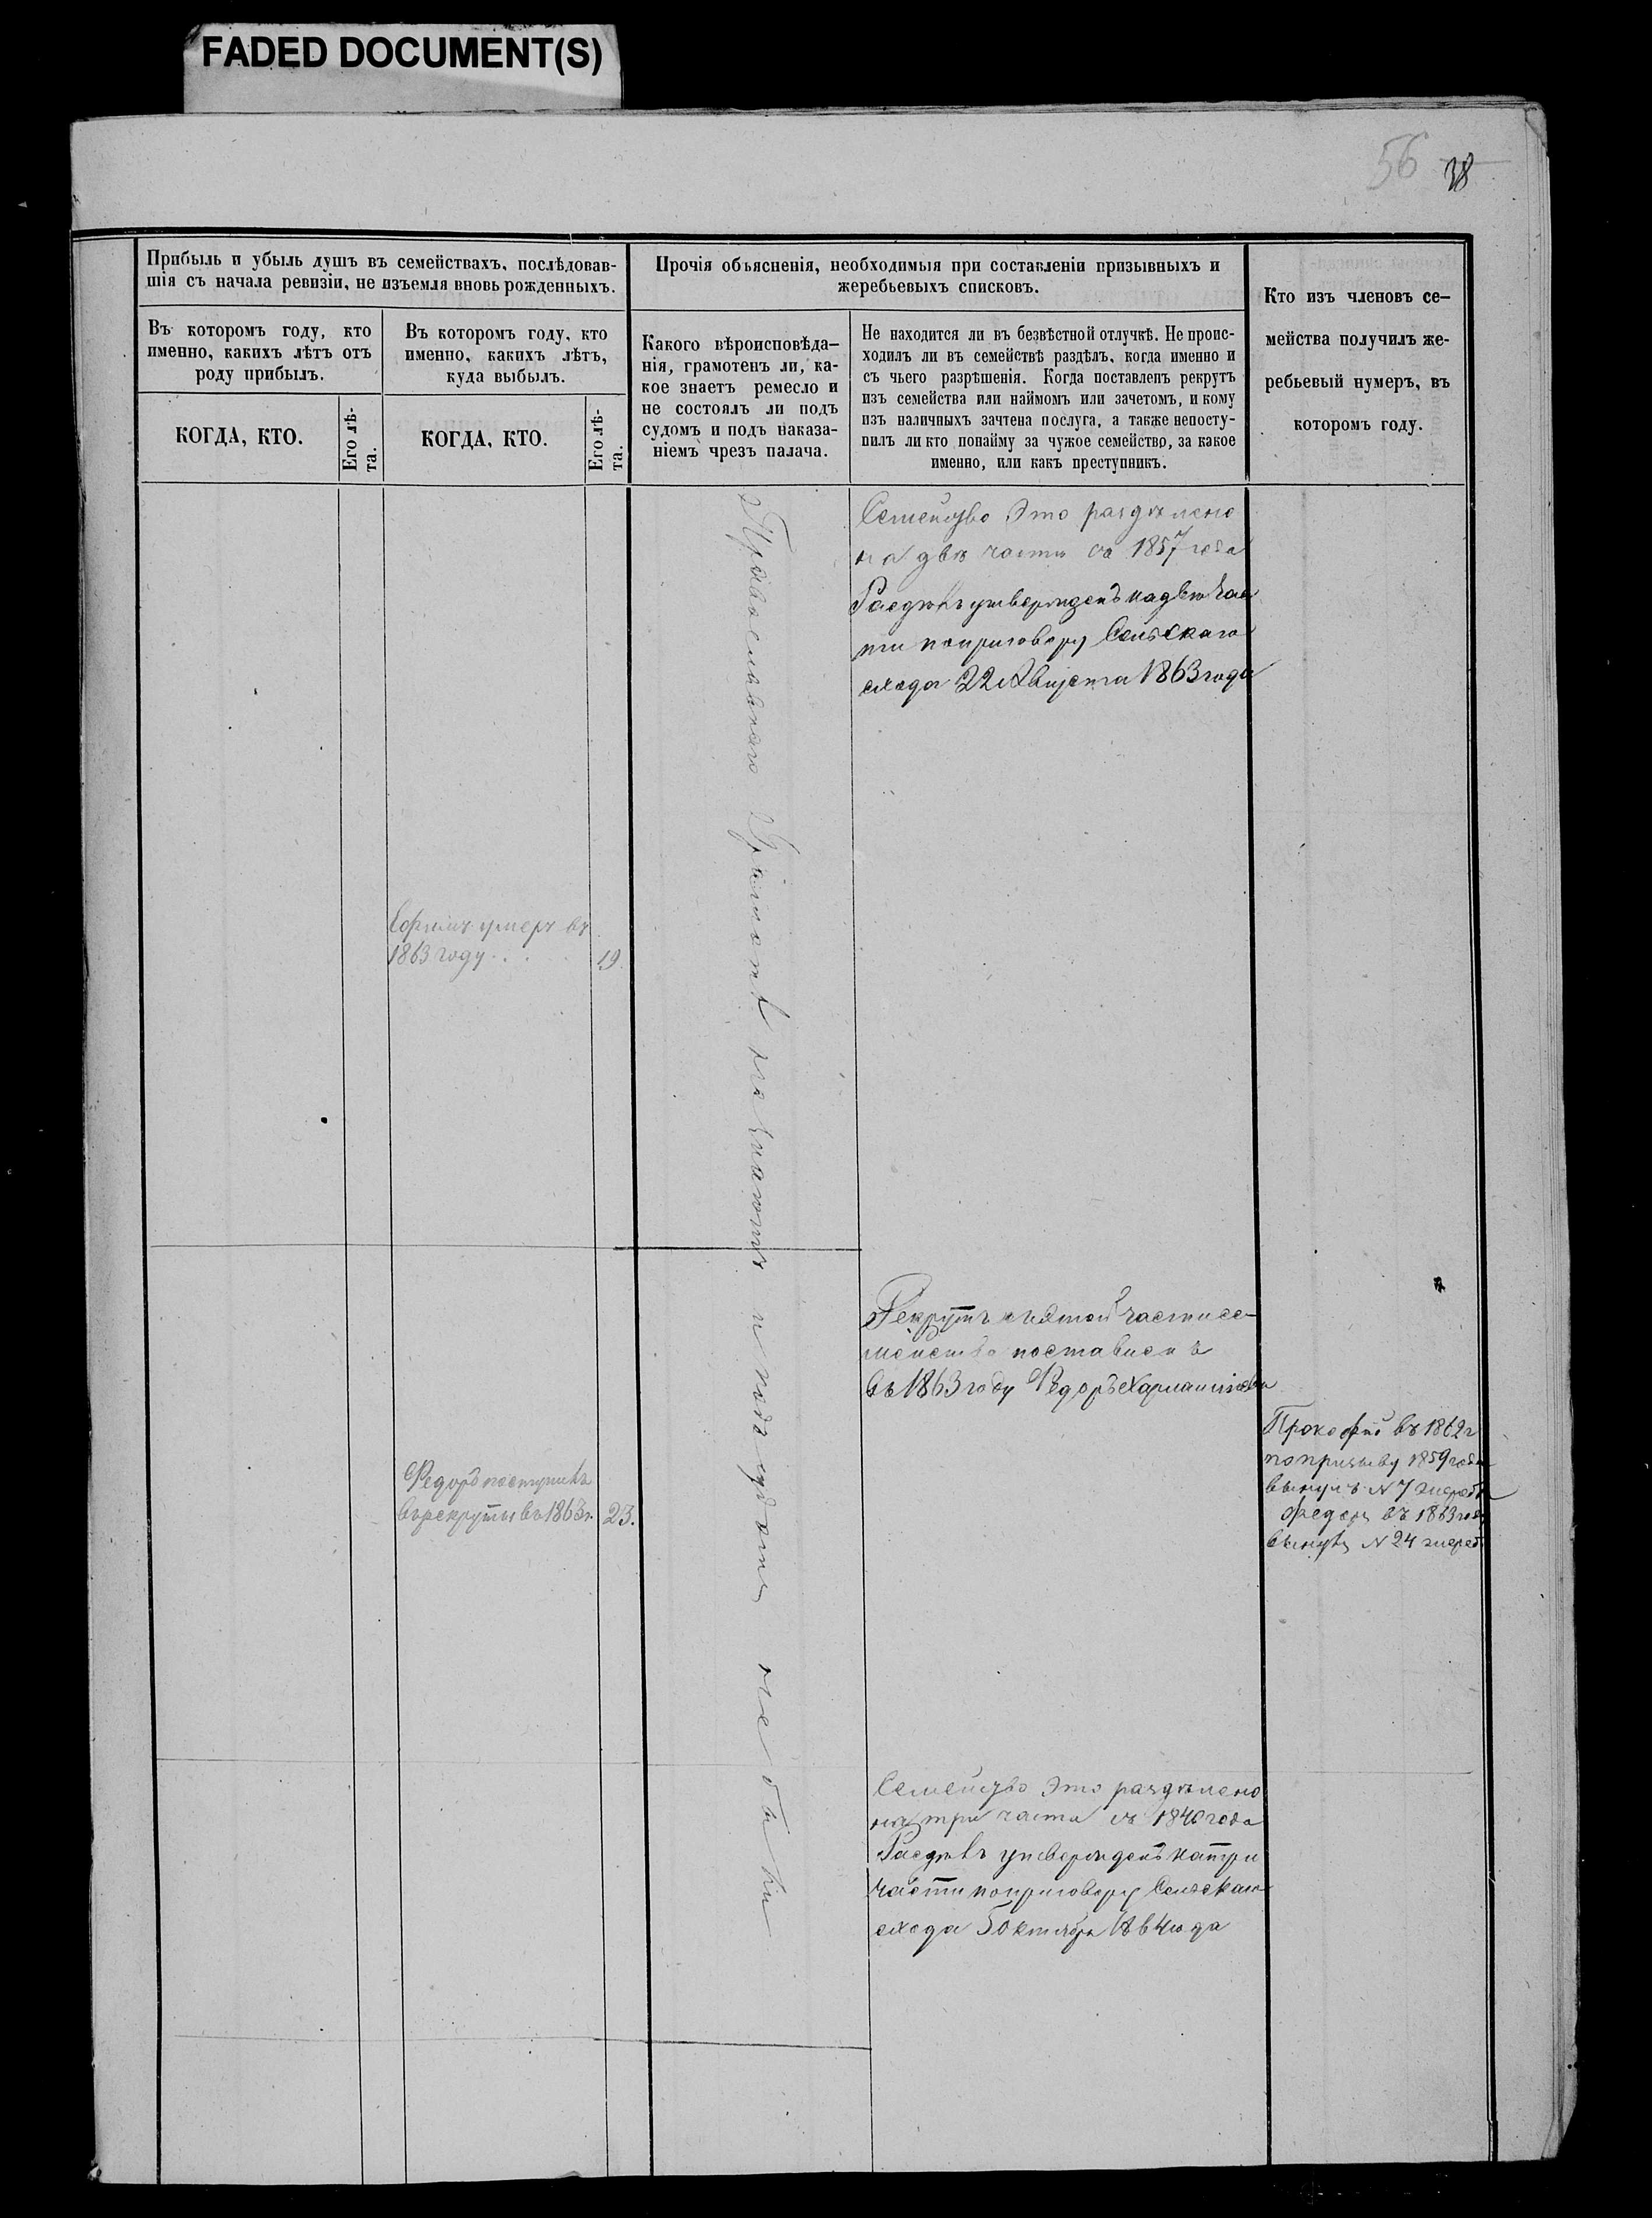 FADED DOCUMENT(S)
56 38
Прибыль и убыль душъ въ семействахъ, послѣдовав-
шія съ начала ревизіи, не изъемля вновь рожденныхъ.
Въ которомъ году, кто
именно, какихъ лѣтъ отъ
роду прибылъ.
КОГДА, КТО.
Его лѣ-
та.
Въ которомъ году, кто
именно, какихъ лѣтъ,
куда выбылъ.
КОГДА, КТО.
Его лѣ-
та.
Прочія объясненія, необходимыя при составленіи призывныхъ и
жеребьевыхъ списковъ.
Какого вѣроисповѣда-
нія, грамотенъ ли, ка-
кое знаетъ ремесло и
не состоялъ ли подъ
судомъ и подъ наказа-
ніемъ чрезъ палача.
Не находится ли въ безвѣстной отлучкѣ. Не проис-
ходилъ ли въ семействѣ раздѣлъ, когда именно и
съ чьего разрѣшенія. Когда поставленъ рекрутъ
изъ семейства или наймомъ или зачетомъ, и кому
изъ наличныхъ зачтена послуга, а также непосту-
пилъ ли кто понайму за чужое семейство, за какое
именно, или какъ преступникъ.
Кто изъ членовъ се-
мейства получилъ же-
ребьевый нумеръ, въ
которомъ году.
Православнаго Грамотѣ не знаютъ и подъ судомъ не были
Семейство Это раздѣлено
на двѣ части съ 1857 года
Раздѣлъ утвержденъ на двѣ час
ти поприговору Сельскаго
схода 22 Августа 1863 года
Ефимъ умеръ въ
1863 году 19
Рекрутъ съ этой части се-
мейства поставленъ
въ 1863 году Федоръ
Прокофій въ 1862 г
попризыву 1859 года
вынулъ N 7 жереб
Федоръ въ 1863 год
вынулъ N 24 жереб
Федоръ поступилъ
въ рекруты въ 1863 г. 23.
Семейство Это раздѣлено
на три части съ 1840 года
Раздѣлъ утвержденъ на три
части поприговору Сельскаго
схода 5 Октября 1864 года